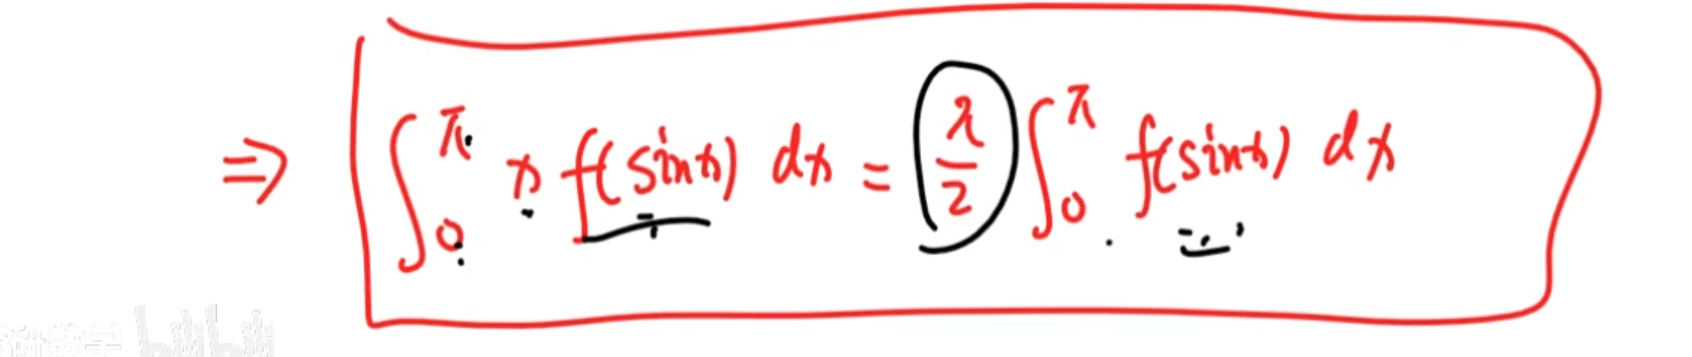 ⇒ ∫₀^π x f(sinx) dx = π/2 ∫₀^π f(sinx) dx
研数学 bilibili